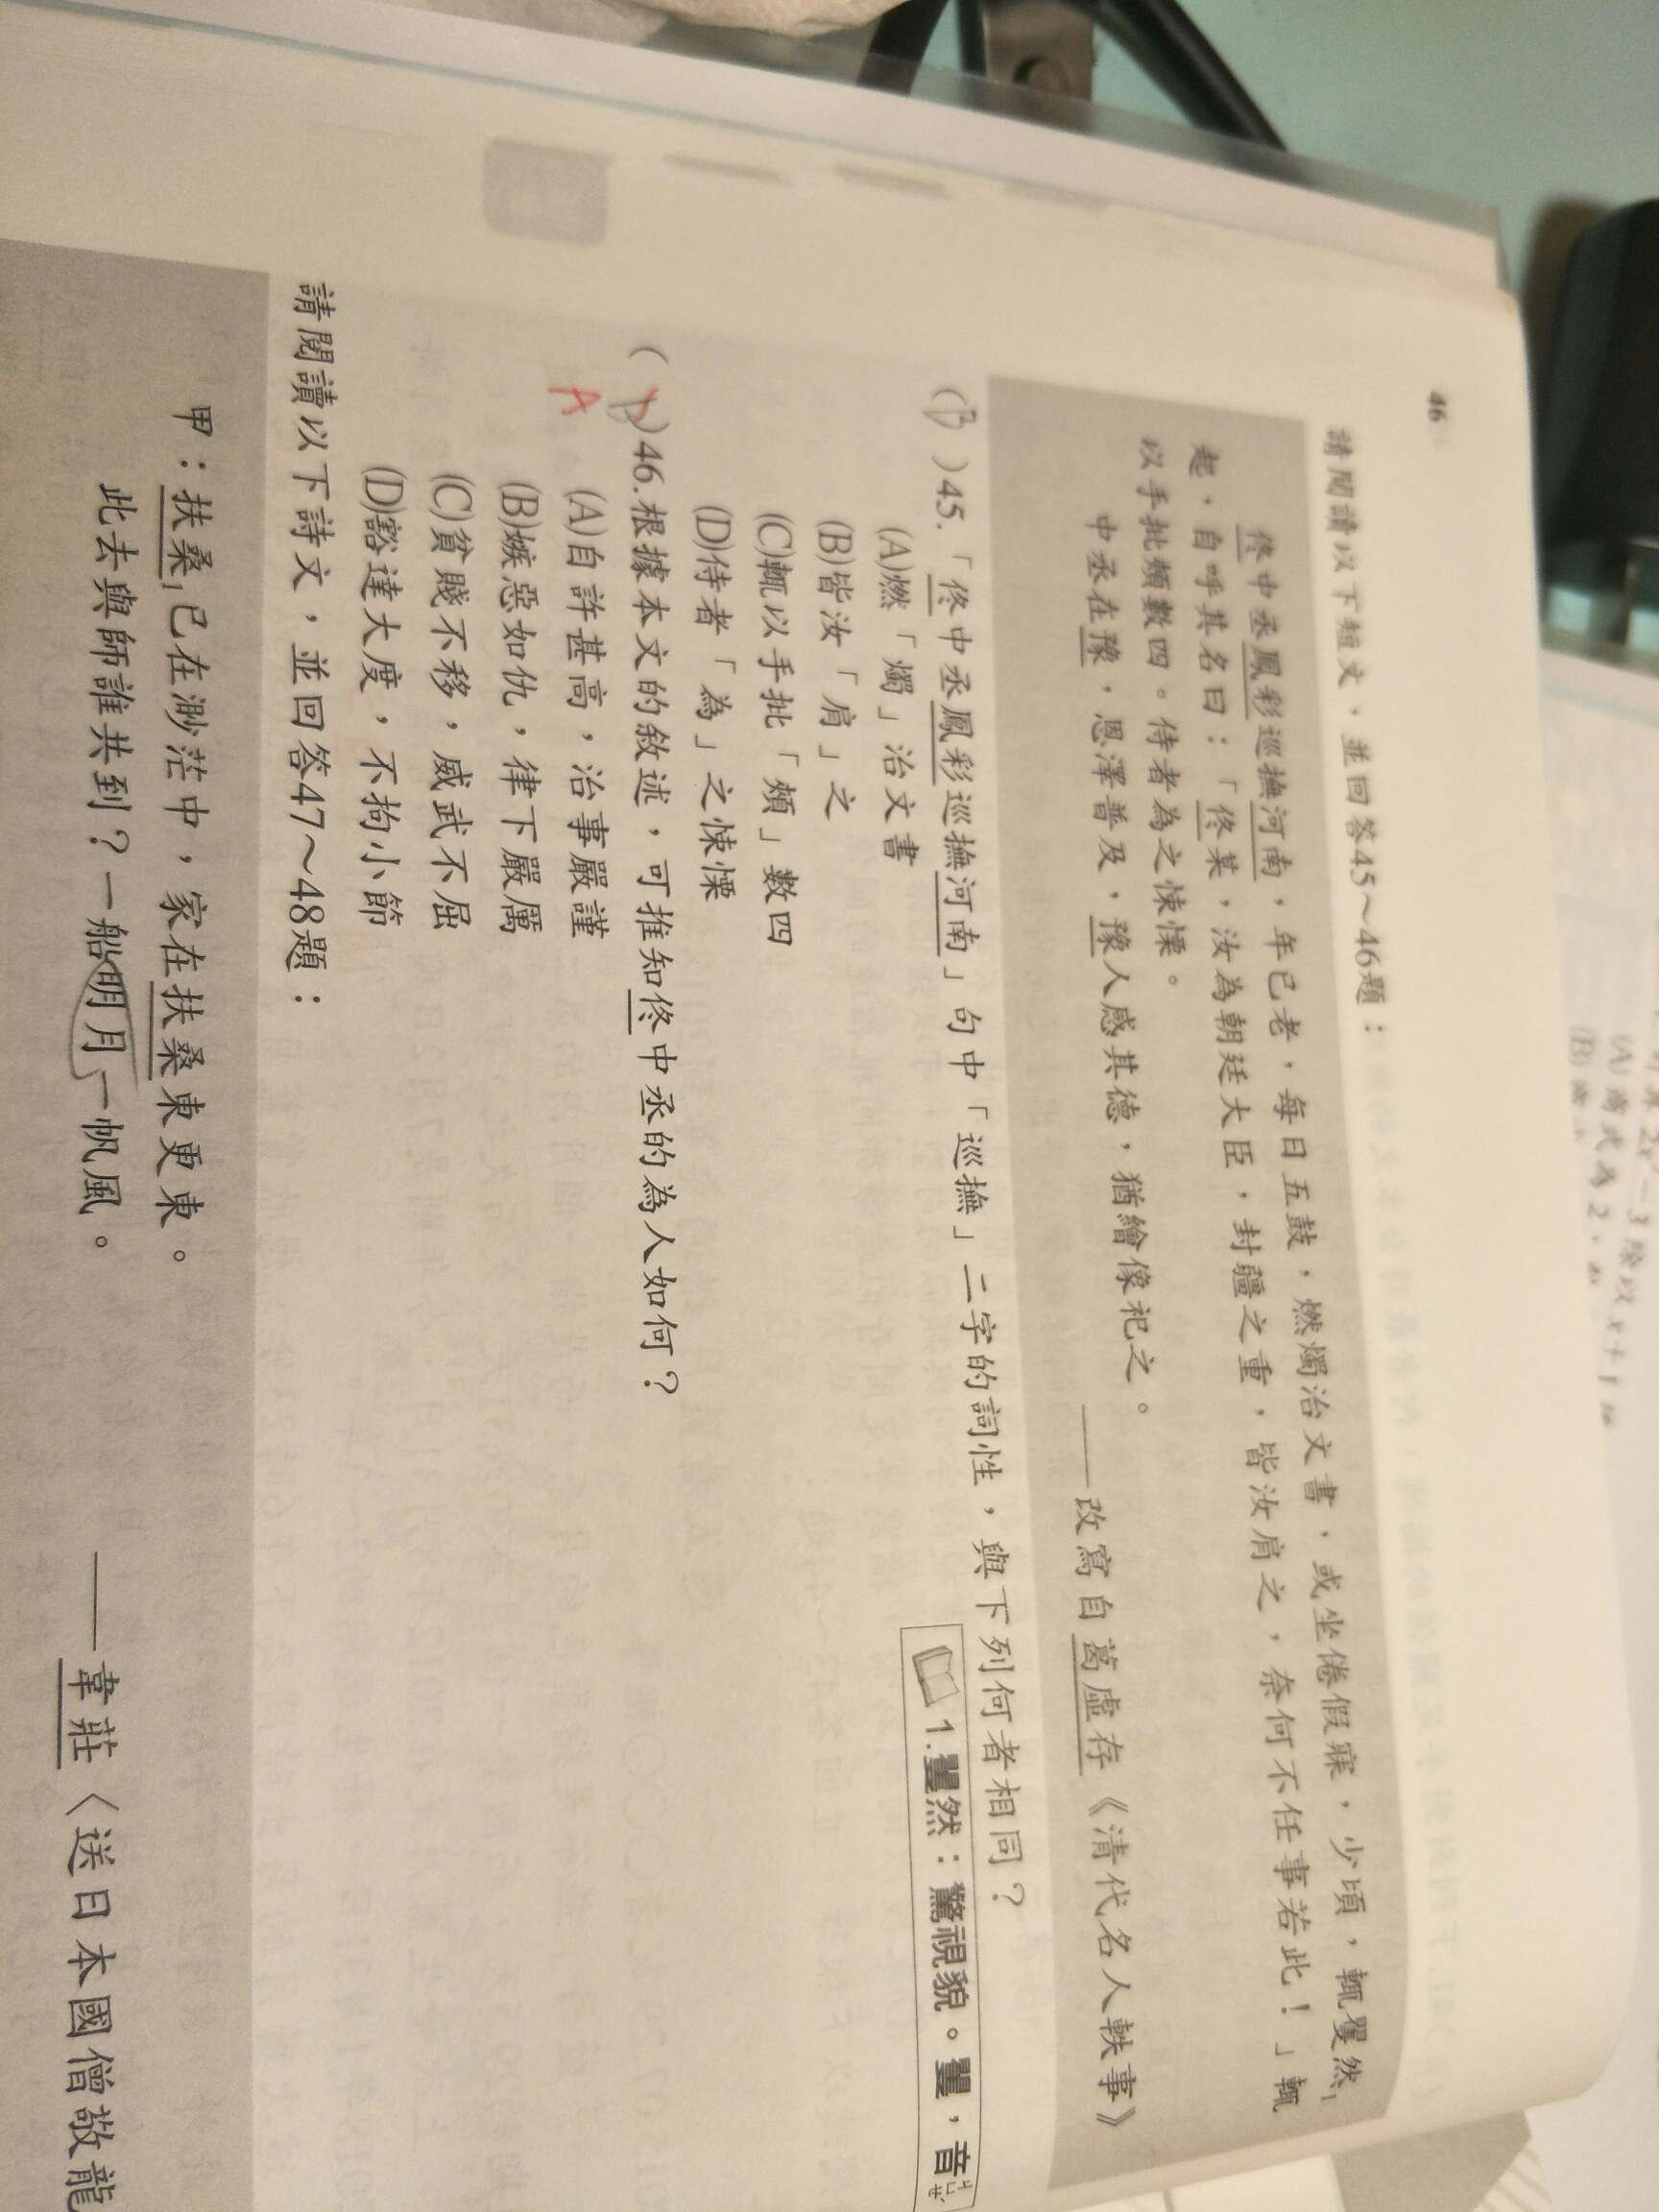 46
請閱讀以下短文，並回答45～46題：
佟中丞鳳彩巡撫河南，年已老，每日五鼓，燃燭治文書，或坐倦假寐，少頃，輒矍然1
起，自呼其名曰：「佟某，汝為朝廷大臣，封疆之重，皆汝肩之，奈何不任事若此！」輒
以手批頰數四。侍者為之悚慄。
中丞在豫，恩澤普及，豫人感其德，猶繪像祀之。
——改寫自葛虛存《清代名人軼事》
1.矍然：驚視貌。矍，音ㄐㄩㄝˊ
(B)45.「佟中丞鳳彩巡撫河南」句中「巡撫」二字的詞性，與下列何者相同？
(A)燃「燭」治文書
(B)皆汝「肩」之
(C)輒以手批「頰」數四
(D)侍者「為」之悚慄
( D )46.根據本文的敘述，可推知佟中丞的為人如何？
A
(A)自許甚高，治事嚴謹
(B)嫉惡如仇，律下嚴厲
(C)貧賤不移，威武不屈
(D)豁達大度，不拘小節
請閱讀以下詩文，並回答47～48題：
甲：扶桑1已在渺茫中，家在扶桑東更東。
此去與師誰共到？一船明月一帆風。
——韋莊〈送日本國僧敬龍
2x²－3除以x＋1
(A)商式為2，
(B)